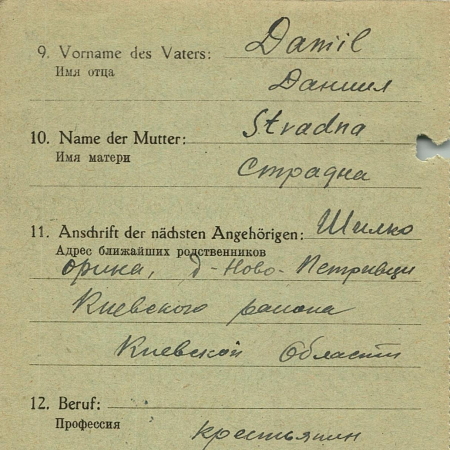 9. Vorname des Vaters: Daniil
Имя отца
Даниил
10. Name der Mutter: Stradna
Имя матери
Страдна
11. Anschrift der nächsten Angehörigen: Шилко
Адрес ближайших родственников
Орина, д-Ново-Петривци
Киевского района
Киевской Области
12. Beruf:
Профессия
крестьянин